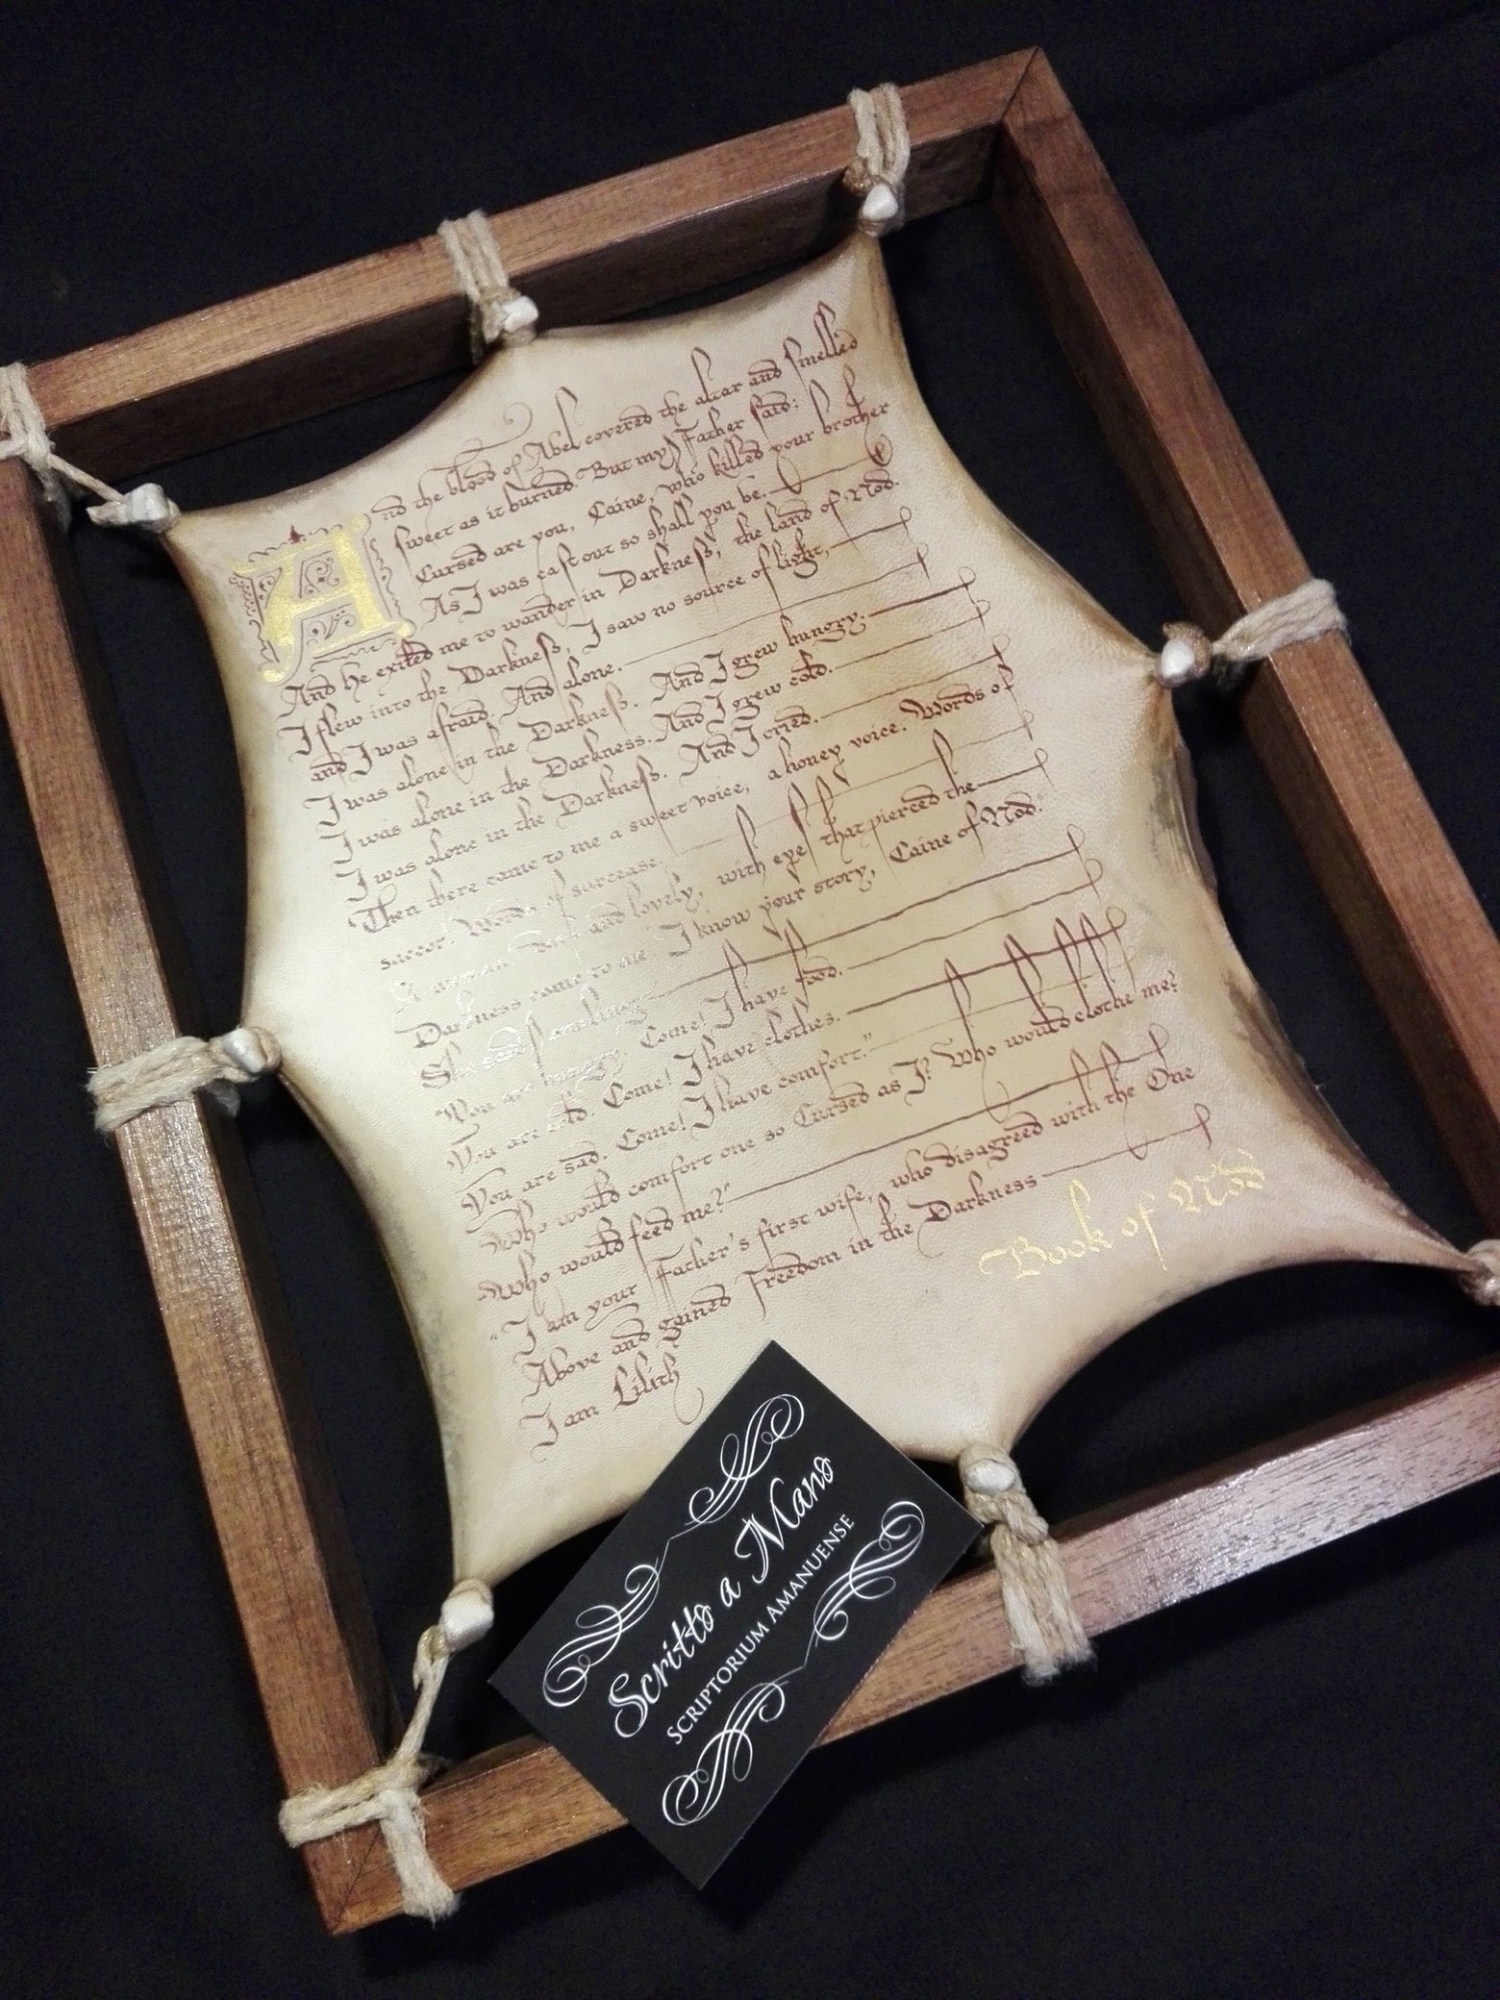 And the blood of Abel covered the altar and smelled
sweet as it burned. But my Father said:
Cursed are you, Caine, who killed your brother
As I was cast out so shall you be.
And he exiled me to wander in Darkness, the land of Nod.
I flew into the Darkness, I saw no source of light,
and I was afraid. And alone.
I was alone in the Darkness. And I grew hungry.
I was alone in the Darkness. And I grew cold.
I was alone in the Darkness. And I cried.
Then there came to me a sweet voice, a honey voice. Words of
succor. Words of surcease.
A woman, dark and lovely, with eyes that pierced the
Darkness came to me "I know your story, Caine of Nod."
She said smiling:
"You are hungry. Come! I have food.
You are cold. Come! I have clothes.
You are sad. Come! I have comfort."
"Who would comfort one so Cursed as I? Who would clothe me?
Who would feed me?"
"I am your Father's first wife, who disagreed with the One
Above and gained Freedom in the Darkness
I am Lilith
Book of Nod
Scritto a Mano
SCRIPTORIUM AMANUENSE